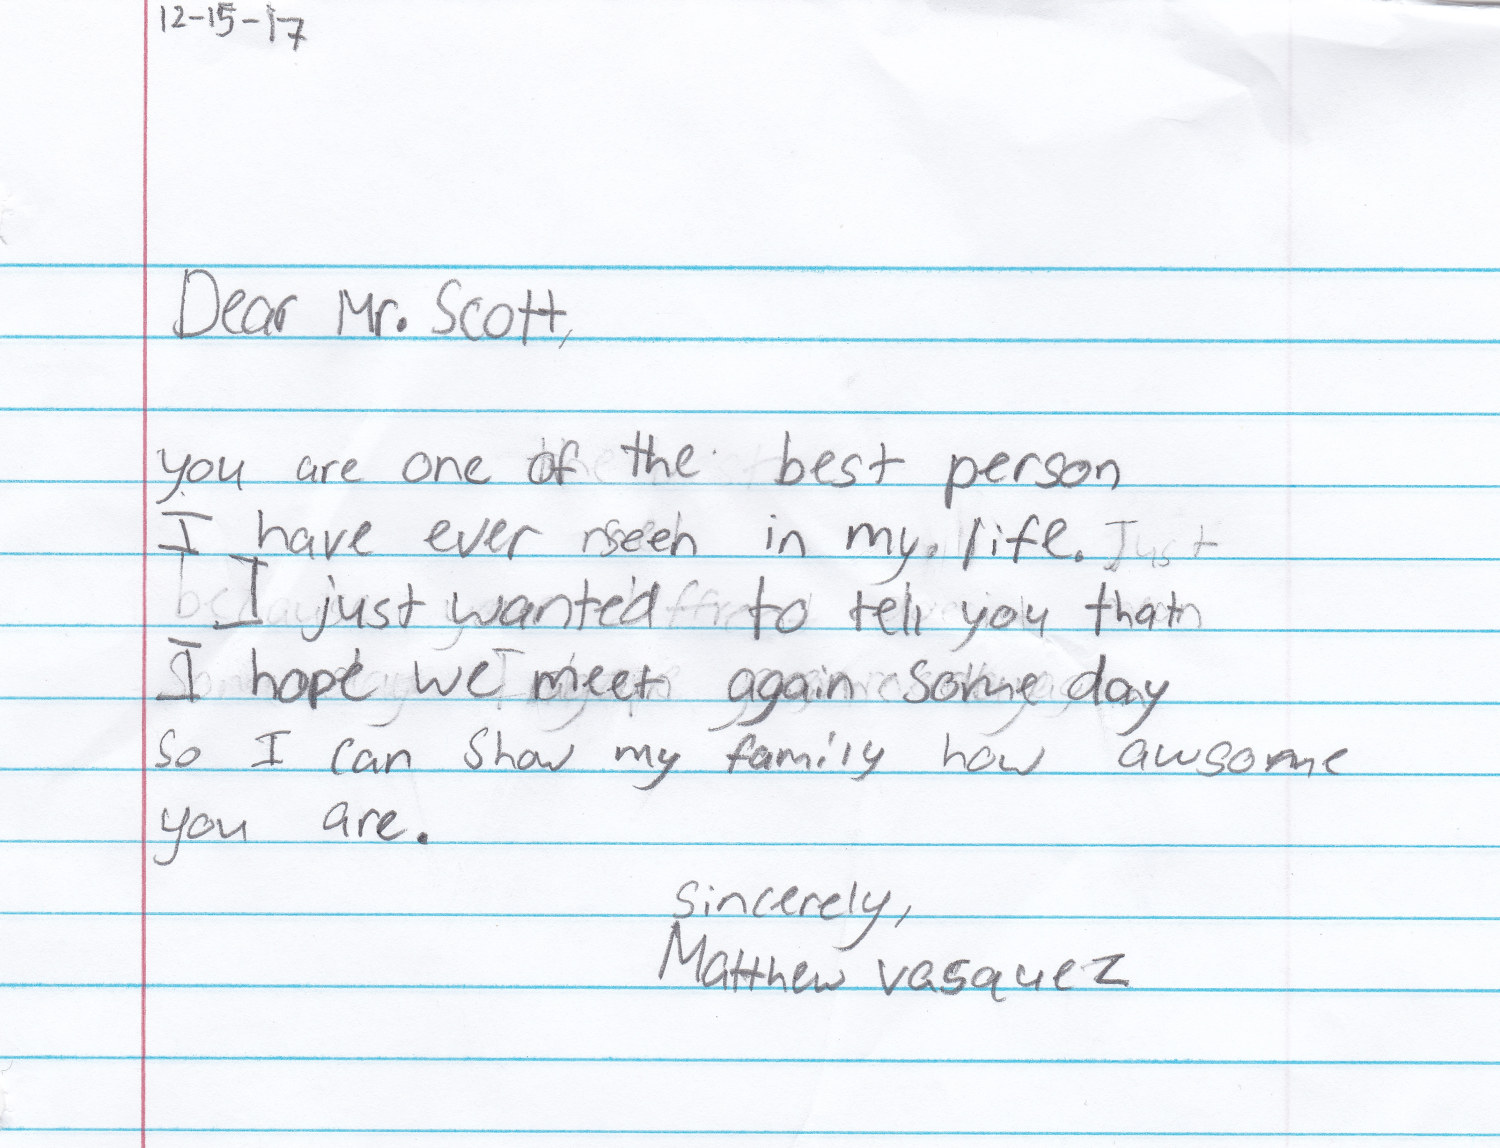 12-15-17
Dear Mr. Scott,
you are one of the best person
I have ever seen in my life. Just
I just wanted to tell you that
I hope we meet again some day
so I can show my family how awsome
you are.
Sincerely,
Matthew vasquez